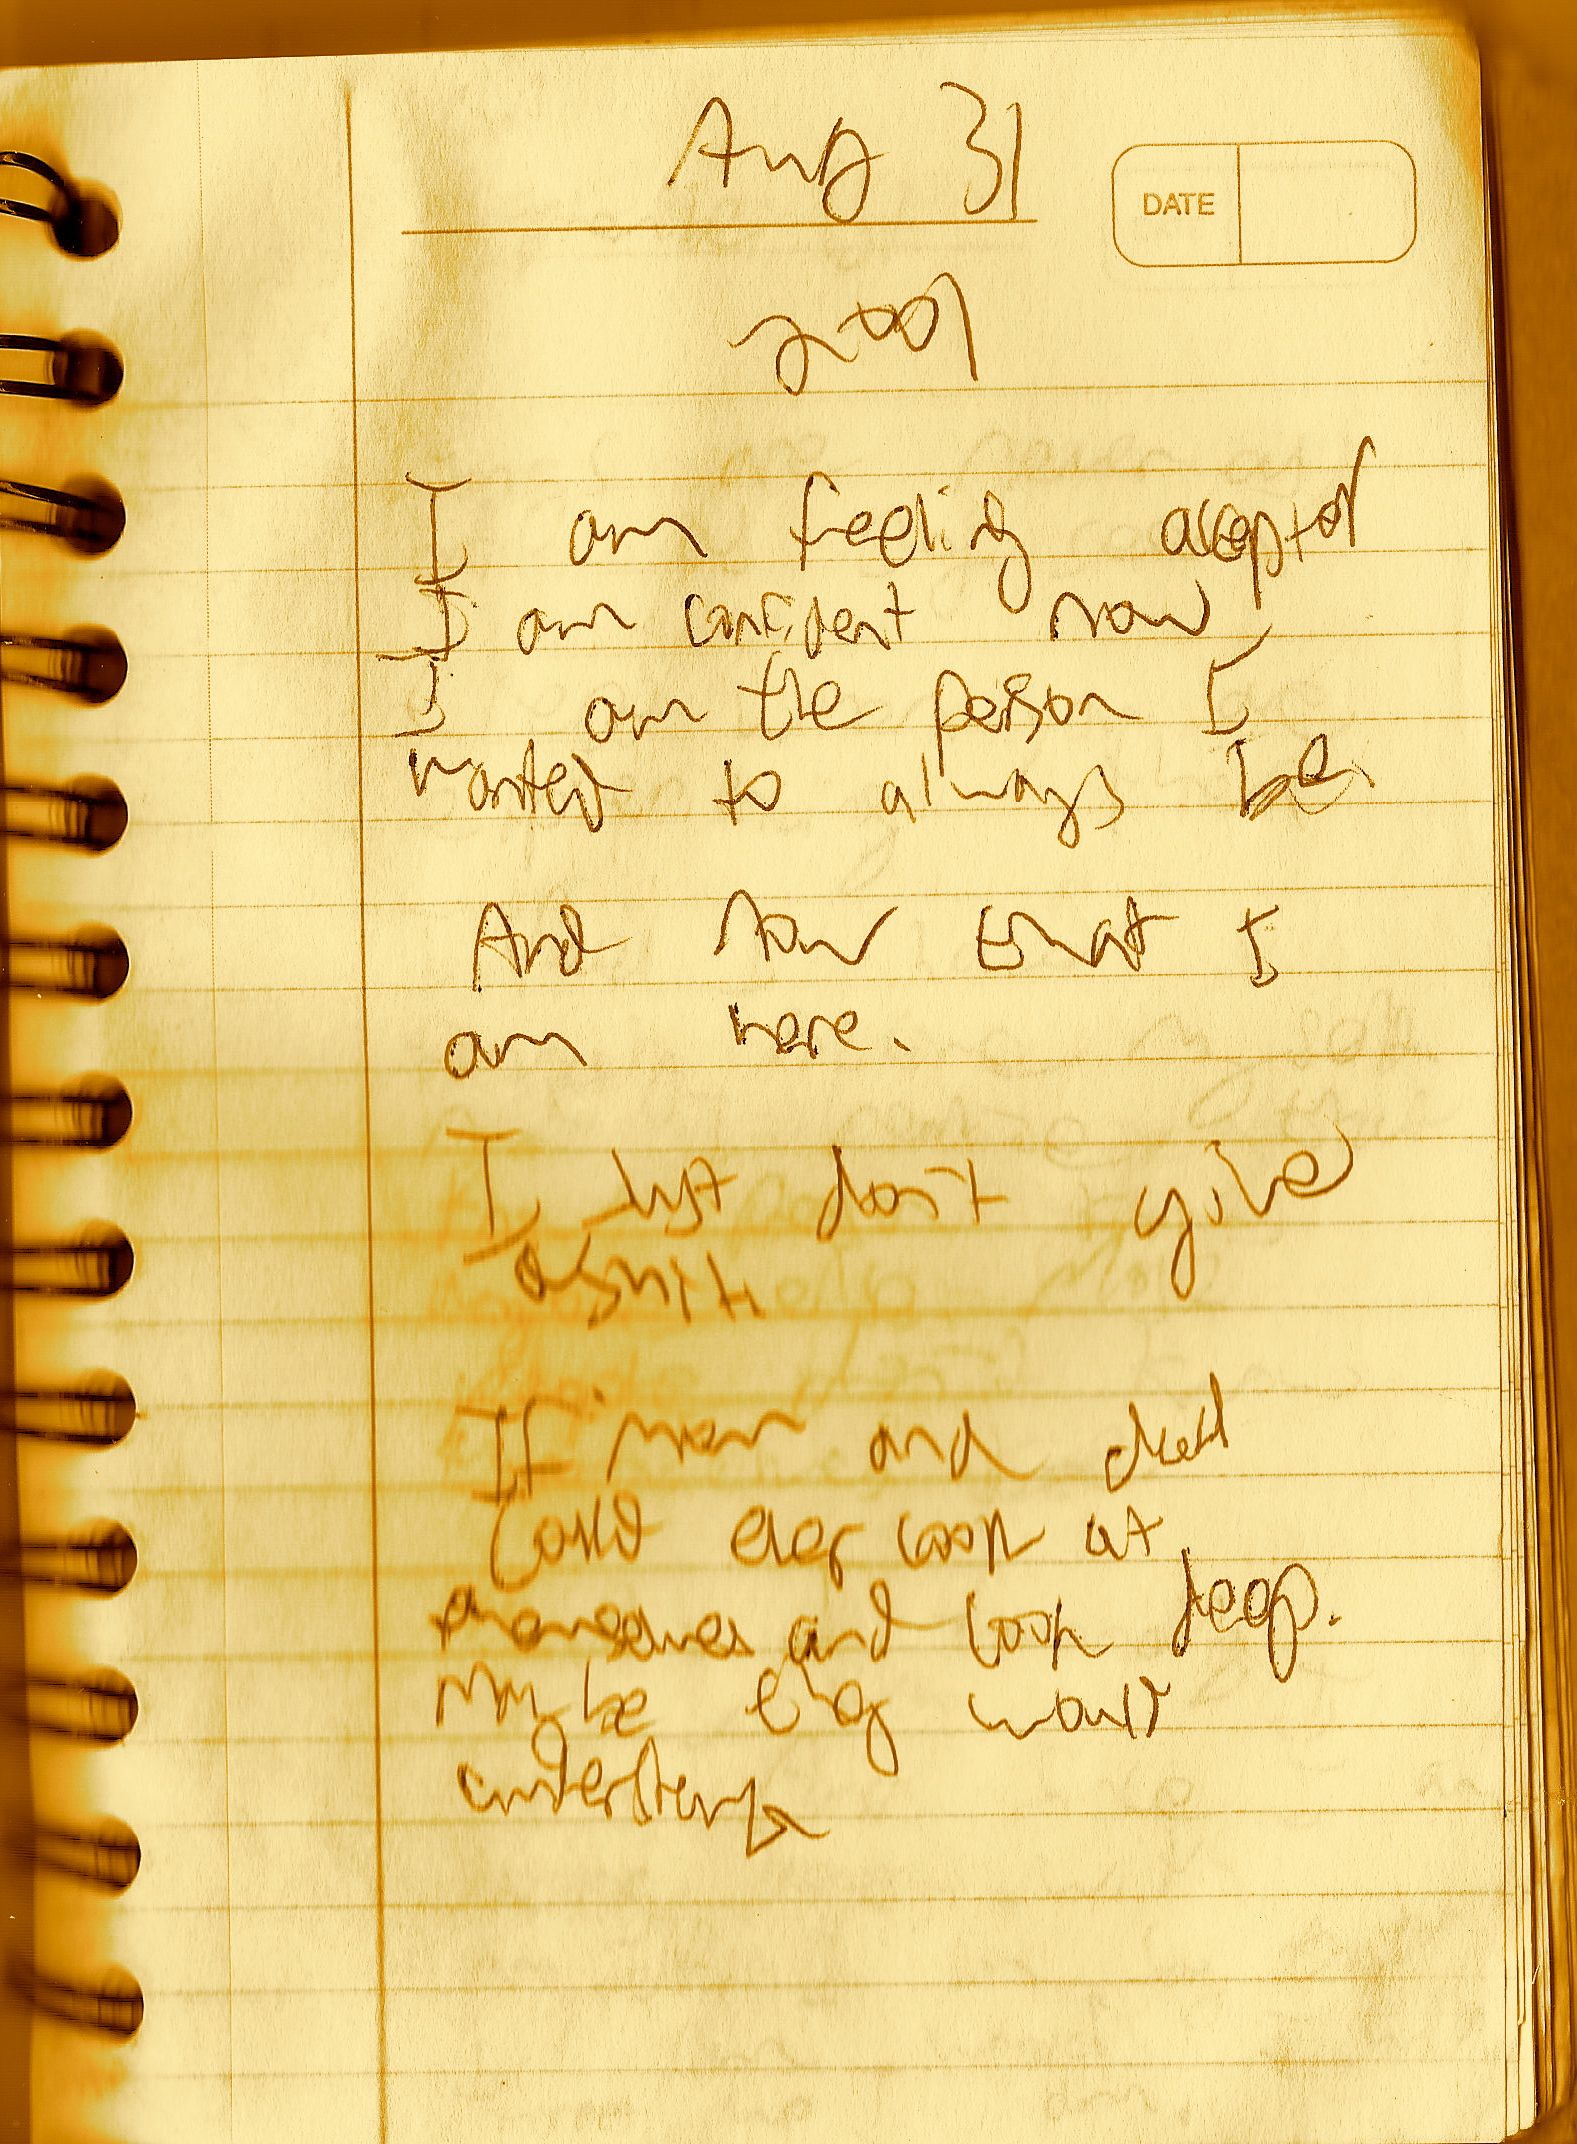 Aug 31
DATE
2001
I am feeling accepted
I am confident now
I am the person I
wanted to always be.
And now that I
am here.
I just don't give
a shit.
If mom and dad
could ever look at
themselves and look deep.
Maybe they would
understand